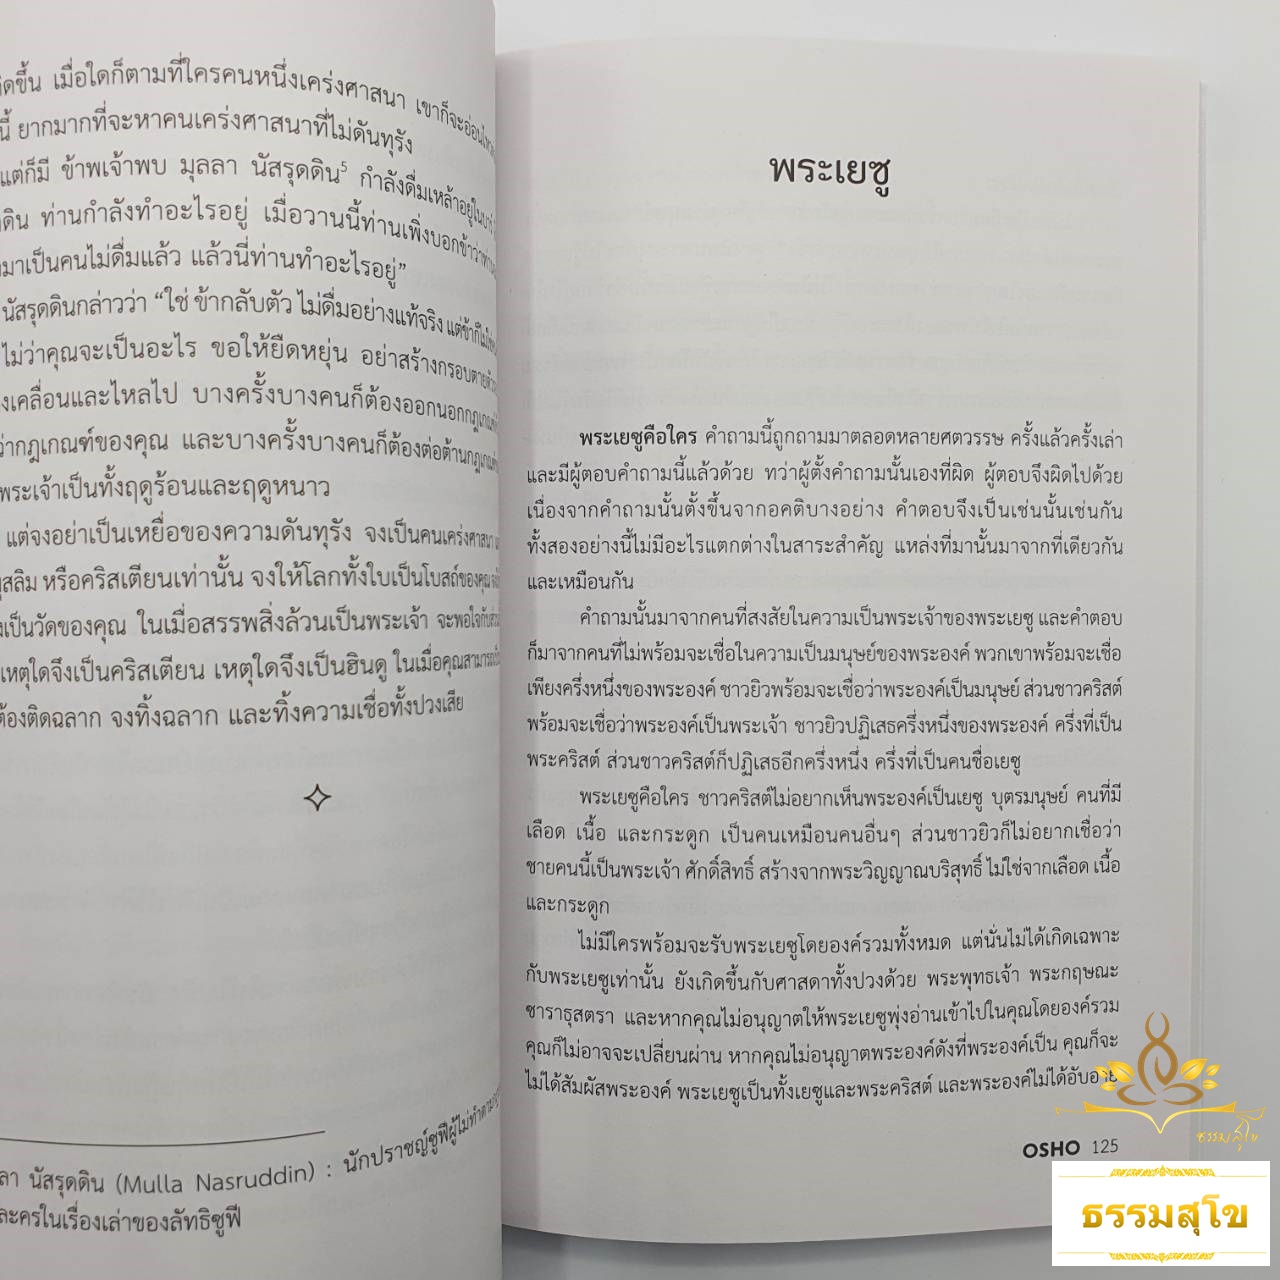 ขึ้น เมื่อใดก็ตามที่ใครคนหนึ่งเคร่งศาสนา เขาก็จะอ่อนโยน
นี้ ยากมากที่จะหาคนเคร่งศาสนาที่ไม่ดันทุรัง
แต่ก็มี ข้าพเจ้าพบ มุลลา นัสรุดดิน5 กำลังดื่มเหล้าอยู่ในบาร์
ดิน ท่านกำลังทำอะไรอยู่ เมื่อวานนี้ท่านเพิ่งบอกข้าว่าท่าน
มาเป็นคนไม่ดื่มแล้ว แล้วนี่ท่านทำอะไรอยู่”
นัสรุดดินกล่าวว่า “ใช่ ข้ากลับตัว ไม่ดื่มอย่างแท้จริง แต่ข้าก็ไม่ใช่
ไม่ว่าคุณจะเป็นอะไร ขอให้ยืดหยุ่น อย่าสร้างกรอบตายตัว
เคลื่อนและไหลไป บางครั้งบางคนก็ต้องออกนอกกฎเกณฑ์
ว่ากฎเกณฑ์ของคุณ และบางครั้งบางคนก็ต้องต่อต้านกฎเกณฑ์
พระเจ้าเป็นทั้งฤดูร้อนและฤดูหนาว
แต่จงอย่าเป็นเหยื่อของความดันทุรัง จงเป็นคนเคร่งศาสนา
มุสลิม หรือคริสเตียนเท่านั้น จงให้โลกทั้งใบเป็นโบสถ์ของคุณ
เป็นวัดของคุณ ในเมื่อสรรพสิ่งล้วนเป็นพระเจ้า จะพอใจกับส่วน
เหตุใดจึงเป็นคริสเตียน เหตุใดจึงเป็นฮินดู ในเมื่อคุณสามารถ
ต้องติดฉลาก จงทิ้งฉลาก และทิ้งความเชื่อทั้งปวงเสีย
ลา นัสรุดดิน (Mulla Nasruddin) : นักปราชญ์ซูฟีผู้ไม่ทำตาม
ละครในเรื่องเล่าของลัทธิซูฟี
พระเยซู
พระเยซูคือใคร คำถามนี้ถูกถามมาตลอดหลายศตวรรษ ครั้งแล้วครั้งเล่า
และมีผู้ตอบคำถามนี้แล้วด้วย ทว่าผู้ตั้งคำถามนั้นเองที่ผิด ผู้ตอบจึงผิดไปด้วย
เนื่องจากคำถามนั้นตั้งขึ้นจากอคติบางอย่าง คำตอบจึงเป็นเช่นนั้นเช่นกัน
ทั้งสองอย่างนี้ไม่มีอะไรแตกต่างในสาระสำคัญ แหล่งที่มานั้นมาจากที่เดียวกัน
และเหมือนกัน
คำถามนั้นมาจากคนที่สงสัยในความเป็นพระเจ้าของพระเยซู และคำตอบ
ก็มาจากคนที่ไม่พร้อมจะเชื่อในความเป็นมนุษย์ของพระองค์ พวกเขาพร้อมจะเชื่อ
เพียงครึ่งหนึ่งของพระองค์ ชาวยิวพร้อมจะเชื่อว่าพระองค์เป็นมนุษย์ ส่วนชาวคริสต์
พร้อมจะเชื่อว่าพระองค์เป็นพระเจ้า ชาวยิวปฏิเสธครึ่งหนึ่งของพระองค์ ครึ่งที่เป็น
พระคริสต์ ส่วนชาวคริสต์ก็ปฏิเสธอีกครึ่งหนึ่ง ครึ่งที่เป็นคนชื่อเยซู
พระเยซูคือใคร ชาวคริสต์ไม่อยากเห็นพระองค์เป็นเยซู บุตรมนุษย์ คนที่มี
เลือด เนื้อ และกระดูก เป็นคนเหมือนคนอื่นๆ ส่วนชาวยิวก็ไม่อยากเชื่อว่า
ชายคนนี้เป็นพระเจ้า ศักดิ์สิทธิ์ สร้างจากพระวิญญาณบริสุทธิ์ ไม่ใช่จากเลือด เนื้อ
และกระดูก
ไม่มีใครพร้อมจะรับพระเยซูโดยองค์รวมทั้งหมด แต่นั่นไม่ได้เกิดเฉพาะ
กับพระเยซูเท่านั้น ยังเกิดขึ้นกับศาสดาทั้งปวงด้วย พระพุทธเจ้า พระกฤษณะ
ซาราธุสตรา และหากคุณไม่อนุญาตให้พระเยซูพุ่งอ่านเข้าไปในคุณโดยองค์รวม
คุณก็ไม่อาจจะเปลี่ยนผ่าน หากคุณไม่อนุญาตพระองค์ดังที่พระองค์เป็น คุณก็จะ
ไม่ได้สัมผัสพระองค์ พระเยซูเป็นทั้งเยซูและพระคริสต์ และพระองค์ไม่ได้อับอาย
OSHO 125
ธรรมสุโข
ธรรมสุโข